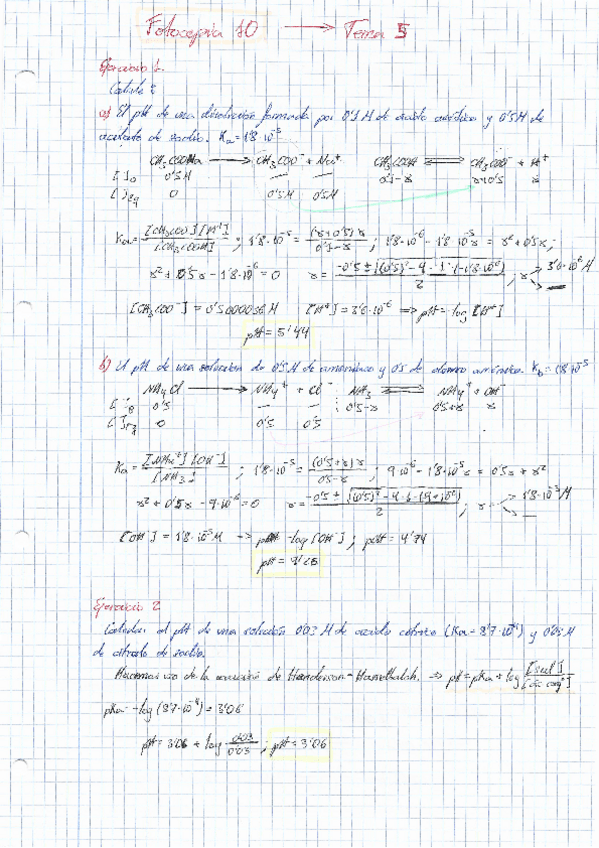 Fotocopia 10 → Tema 5
Ejercicio 1.
Calcule:
a) El pH de una disolución formada por 0'1 M de ácido acético y 0'5M de
acetato de sodio. Ka = 1'8·10⁻⁵
CH₃COONa → CH₃COO⁻ + Na⁺ CH₃COOH ⇌ CH₃COO⁻ + H⁺
[ ]₀ 0'5M — — 0'1-x x+0'5 x
[ ]eq 0 0'5M 0'5M
Ka = [CH₃COO⁻][H⁺] / [CH₃COOH] ; 1'8·10⁻⁵ = (x+0'5)x / 0'1-x ; 1'8·10⁻⁶ - 1'8·10⁻⁵x = x² + 0'5x ;
x² + 0'5x - 1'8·10⁻⁶ = 0 x = -0'5 ± √(0'5)² - 4·1·(-1'8·10⁻⁶) / 2 ; x → 3'6·10⁻⁶ M
[CH₃COO⁻] = 0'5000036 M [H⁺] = 3'6·10⁻⁶ ⇒ pH = -log [H⁺]
pH = 5'44
b) El pH de una solución de 0'5 M de amoniaco y 0'5 de cloruro amónico. Kb = 1'8·10⁻⁵
NH₄Cl → NH₄⁺ + Cl⁻ ; NH₃ ⇌ NH₄⁺ + OH⁻
[ ]₀ 0'5 — — 0'5-x 0'5+x x
[ ]Eq 0 0'5 0'5
Ka = [NH₄⁺][OH⁻] / [NH₃] ; 1'8·10⁻⁵ = (0'5+x)x / 0'5-x ; 9·10⁻⁶ - 1'8·10⁻⁵x = 0'5x + x²
x² + 0'5x - 9·10⁻⁶ = 0 x = -0'5 ± √(0'5)² - 4·1·(-9·10⁻⁶) / 2 ; x → 1'8·10⁻⁵ M
[OH⁻] = 1'8·10⁻⁵ M → -log [OH⁻] ; pOH = 4'74
pH = 9'26
Ejercicio 2
Calcular el pH de una solución 0'03 M de ácido cítrico (Ka = 8'7·10⁻⁴) y 0'03 M
de citrato de sodio.
Hacemos uso de la ecuación de Henderson-Hasselbalch. ⇒ pH = pKa + log [sal] / [ác. conj]
pKa = -log (8'7·10⁻⁴) = 3'06
pH = 3'06 + log 0'03 / 0'03 ; pH = 3'06